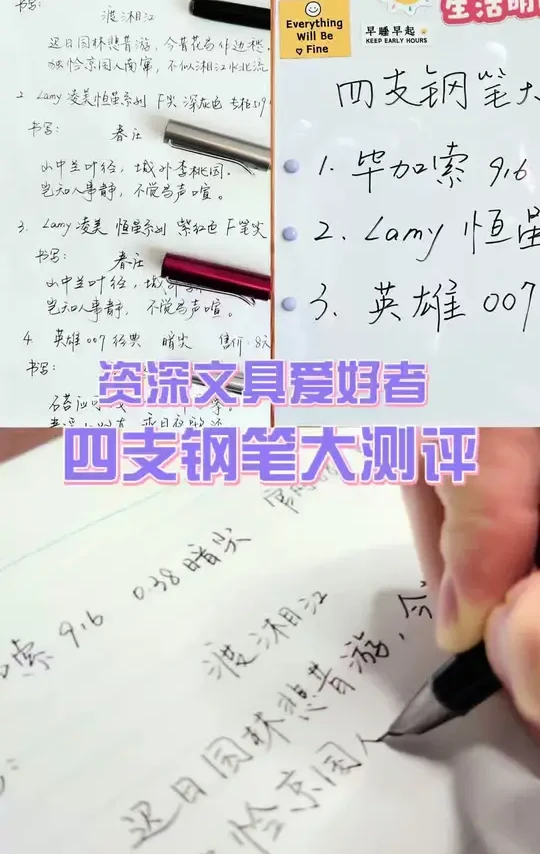 书写:
渡湘江
迟日园林悲昔游,今昔花鸟作边愁。
独怜京国人南窜,不似湘江水北流
2 Lamy 凌美恒星系列 F尖 深灰色
书写: 春庄
山中兰叶径,城外李桃园。
岂知人事静,不觉鸟声喧。
3. Lamy 凌美 恒星系列 紫红色 F笔尖
书写: 春庄
山中兰叶径,城
岂知人事静,不觉鸟声喧。
4. 英雄 007 经典 暗尖 售价:8元
书写:
Everything
Will Be
Fine
早睡早起
KEEP EARLY HOURS
生活明
四支钢笔大
1. 毕加索 916
2. Lamy 恒星
3. 英雄 007
资深文具爱好者
四支钢笔大测评
索 916 0.38暗尖
渡湘江
迟日园林悲昔游,今
怜京国人